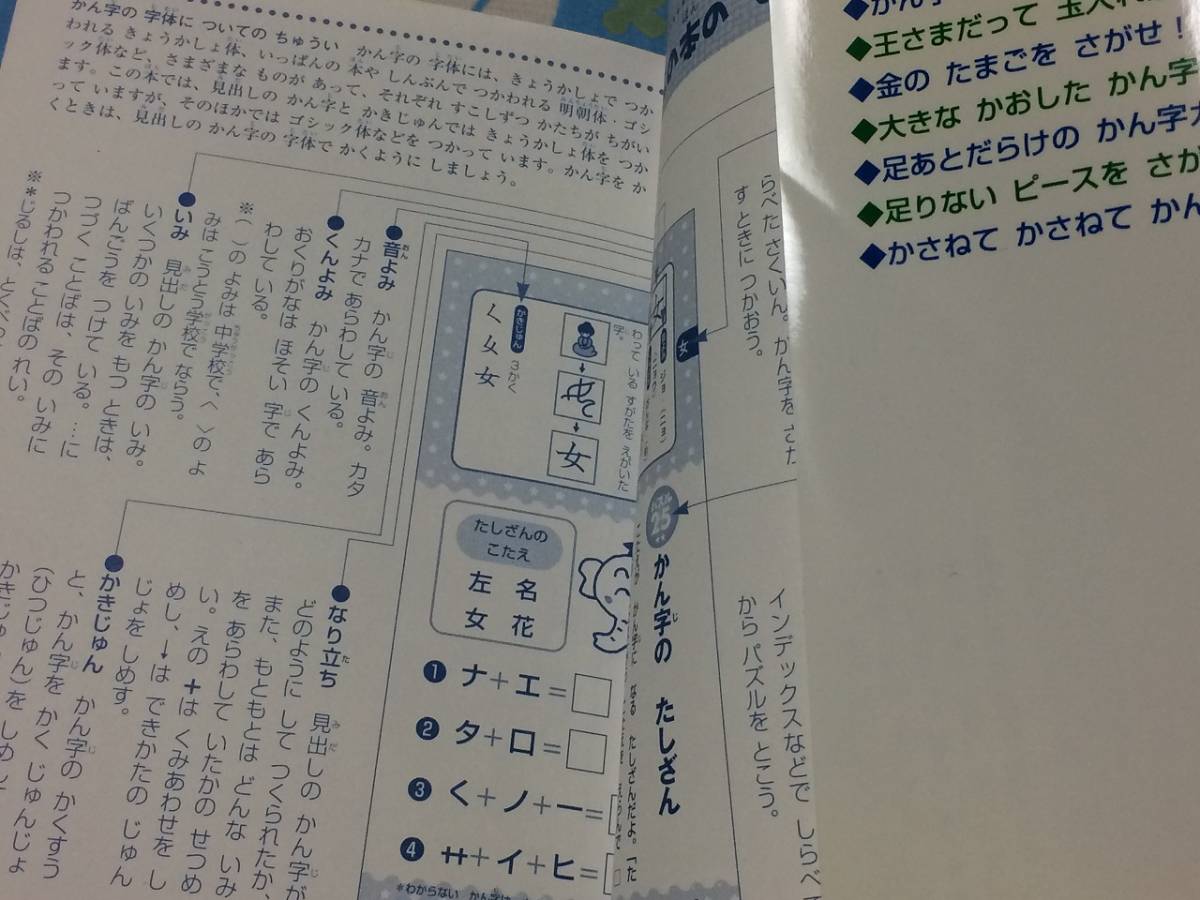 かん字の 字体に ついての ちゅうい かん字の 字体には、きょうかしょで つか
われる きょうかしょ体、いっぱんの 本や しんぶんで つかわれる 明朝体・ゴシ
ック体など、さまざまな ものが あって、それぞれ すこしずつ かたちが ちがい
ます。この本では、見出しの かん字と かきじゅんでは きょうかしょ体を つか
って いますが、そのほかでは ゴシック体などを つかって います。かん字を か
くときは、見出しの かん字の 字体で かくように しましょう。
音よみ かん字の 音よみ。カタ
カナで あらわして いる。
くんよみ かん字の くんよみ。
おくりがなは ほそい 字で あら
わして いる。
※( )の よみは 中学校で、〈 〉の よ
みは こうとう学校で ならう。
いみ 見出しの かん字の いみ。
いくつかの いみを もつ ときは、
ばんごうを つけて いる。…に
つづく ことばは、その いみに
つかわれる ことばの れい。
※*じるしは、とくべつ
なり立ち 見出しの かん字が
どのように して つくられたか、
また、もともとは どんな いみ
を あらわして いたかの せつめ
い。えの +は くみあわせを し
めし、→は できかたの じゅん
じょを しめす。
かきじゅん かん字の かくすう
と、かん字を かく じゅんじょ
(ひつじゅん)を しめして
わって いる すがたを えがいた
字。
女
かきじゅん 3かく
く 女 女
たしざんの
こたえ
左 名
女 花
❶ ナ+エ=
❷ タ+口=
❸ く+ノ+一=
❹ 艹+イ+ヒ=
*わからない かん字は
25
かん字の たしざん
たしざんだよ。「た
女
ジョ
らべた さくいん。かん字を
す ときに つかおう。
インデックスなどで しらべ
から パズルを とこう。
本の
◆かん字
◆王さまだって 玉入れ
◆金の たまごを さがせ!
◆大きな かおした かん字
◆足あとだらけの かん字
◆足りない ピースを さが
◆かさねて かさねて かん